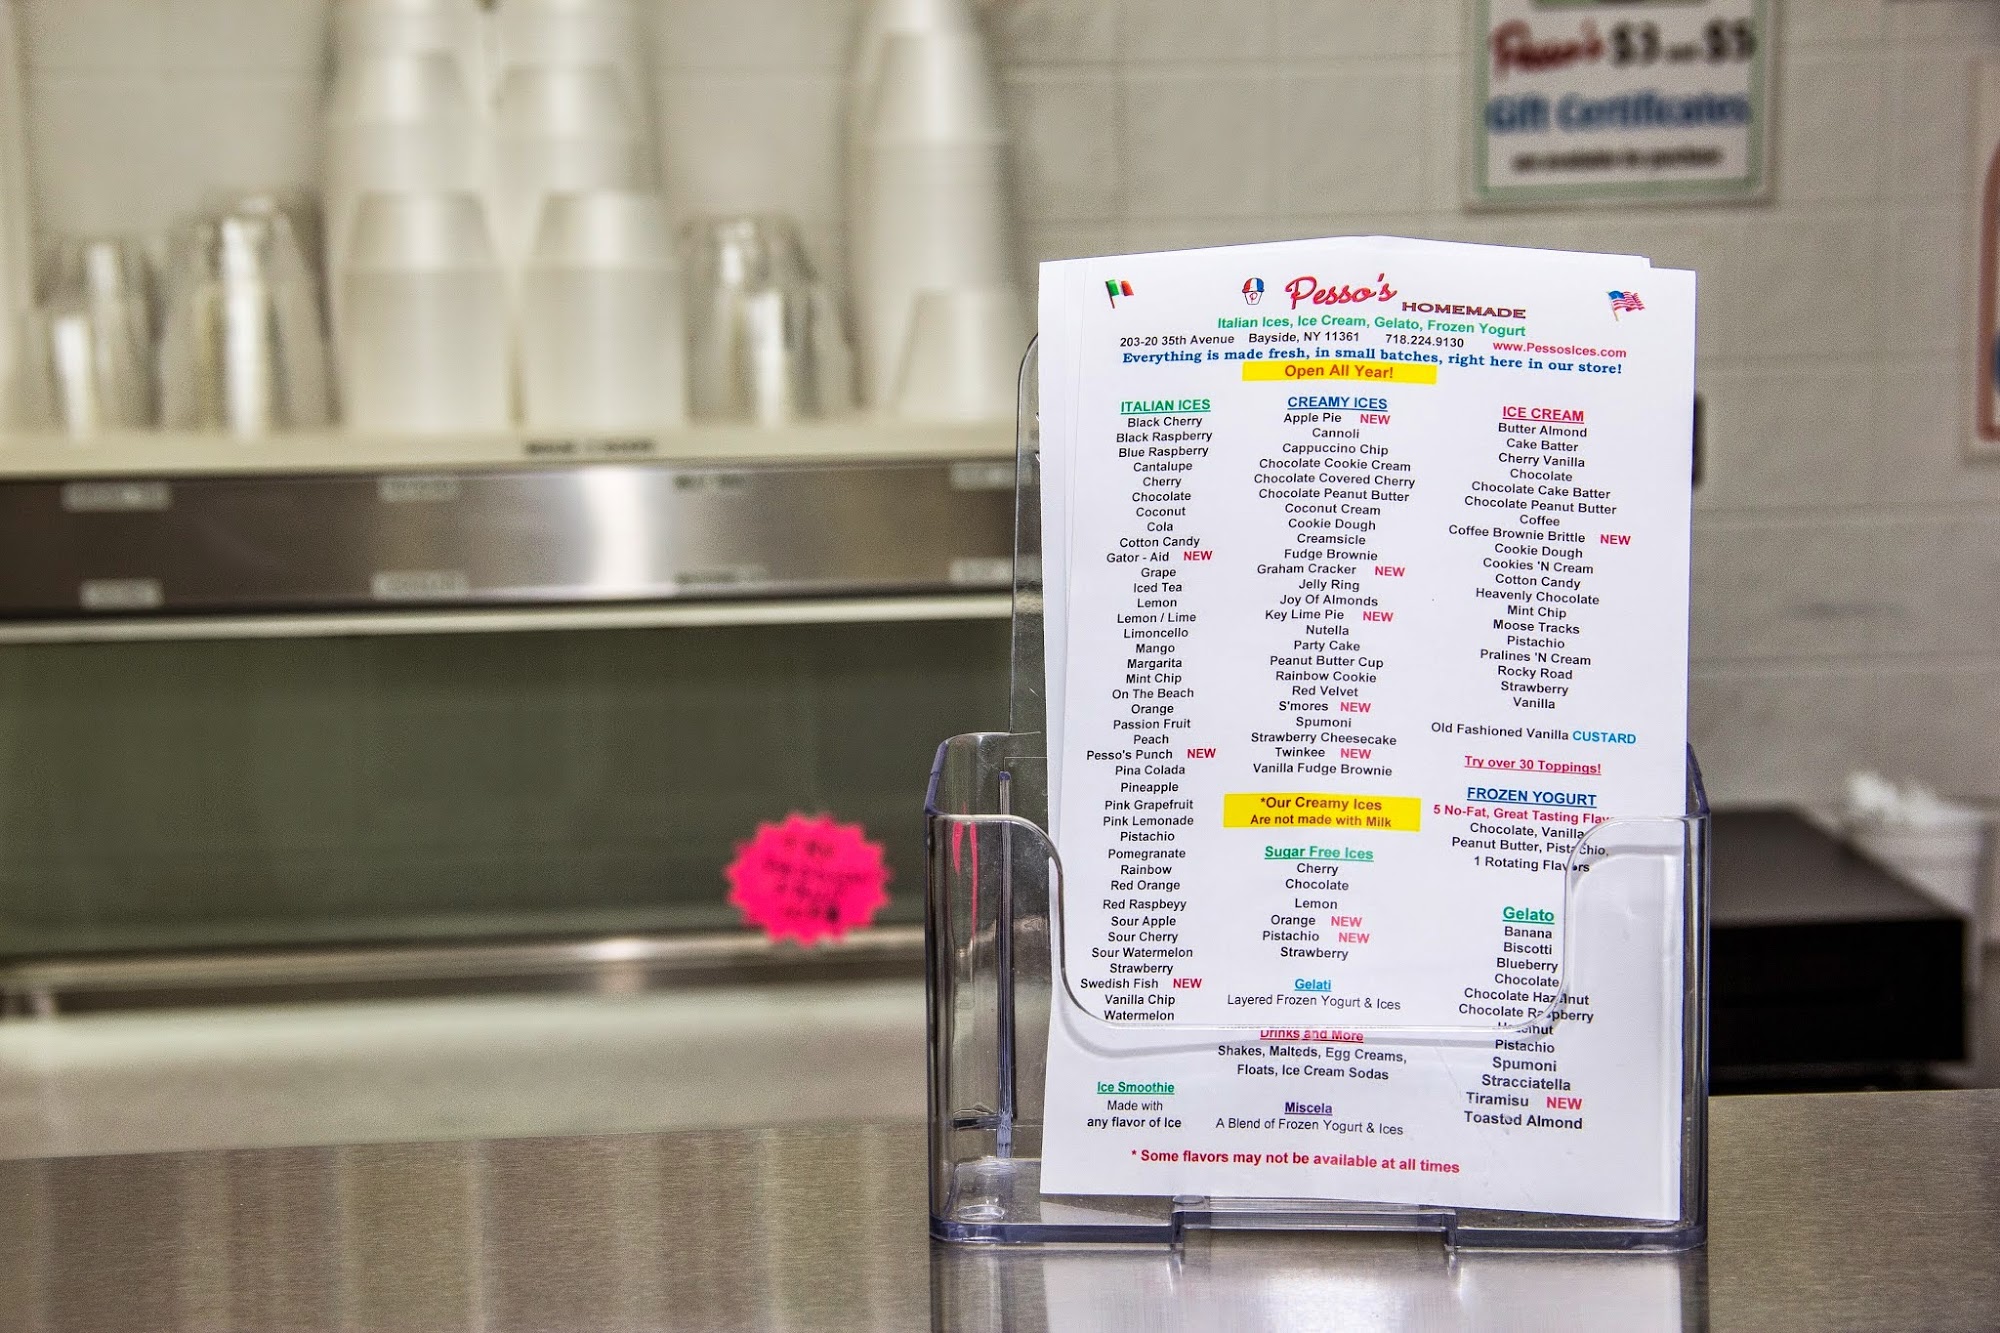 Pesso's $3 and $5
Gift Certificates
Pesso's HOMEMADE
Italian Ices, Ice Cream, Gelato, Frozen Yogurt
203-20 35th Avenue Bayside, NY 11361 718.224.9130 www.PessosIces.com
Everything is made fresh, in small batches, right here in our store!
Open All Year!
ITALIAN ICES
Black Cherry
Black Raspberry
Blue Raspberry
Cantalupe
Cherry
Chocolate
Coconut
Cola
Cotton Candy
Gator - Aid NEW
Grape
Iced Tea
Lemon
Lemon / Lime
Limoncello
Mango
Margarita
Mint Chip
On The Beach
Orange
Passion Fruit
Peach
Pesso's Punch NEW
Pina Colada
Pineapple
Pink Grapefruit
Pink Lemonade
Pistachio
Pomegranate
Rainbow
Red Orange
Red Raspbeyy
Sour Apple
Sour Cherry
Sour Watermelon
Strawberry
Swedish Fish NEW
Vanilla Chip
Watermelon
Ice Smoothie
Made with
any flavor of Ice
CREAMY ICES
Apple Pie NEW
Cannoli
Cappuccino Chip
Chocolate Cookie Cream
Chocolate Covered Cherry
Chocolate Peanut Butter
Coconut Cream
Cookie Dough
Creamsicle
Fudge Brownie
Graham Cracker NEW
Jelly Ring
Joy Of Almonds
Key Lime Pie NEW
Nutella
Party Cake
Peanut Butter Cup
Rainbow Cookie
Red Velvet
S'mores NEW
Spumoni
Strawberry Cheesecake
Twinkee NEW
Vanilla Fudge Brownie
*Our Creamy Ices
Are not made with Milk
Sugar Free Ices
Cherry
Chocolate
Lemon
Orange NEW
Pistachio NEW
Strawberry
Gelati
Layered Frozen Yogurt & Ices
Drinks and More
Shakes, Malteds, Egg Creams,
Floats, Ice Cream Sodas
Miscela
A Blend of Frozen Yogurt & Ices
ICE CREAM
Butter Almond
Cake Batter
Cherry Vanilla
Chocolate
Chocolate Cake Batter
Chocolate Peanut Butter
Coffee
Coffee Brownie Brittle NEW
Cookie Dough
Cookies 'N Cream
Cotton Candy
Heavenly Chocolate
Mint Chip
Moose Tracks
Pistachio
Pralines 'N Cream
Rocky Road
Strawberry
Vanilla
Old Fashioned Vanilla CUSTARD
Try over 30 Toppings!
FROZEN YOGURT
5 No-Fat, Great Tasting Flav
Chocolate, Vanilla
Peanut Butter, Pistachio,
1 Rotating Flavors
Gelato
Banana
Biscotti
Blueberry
Chocolate
Chocolate Hazelnut
Chocolate Raspberry
Hazelnut
Pistachio
Spumoni
Stracciatella
Tiramisu NEW
Toasted Almond
* Some flavors may not be available at all times